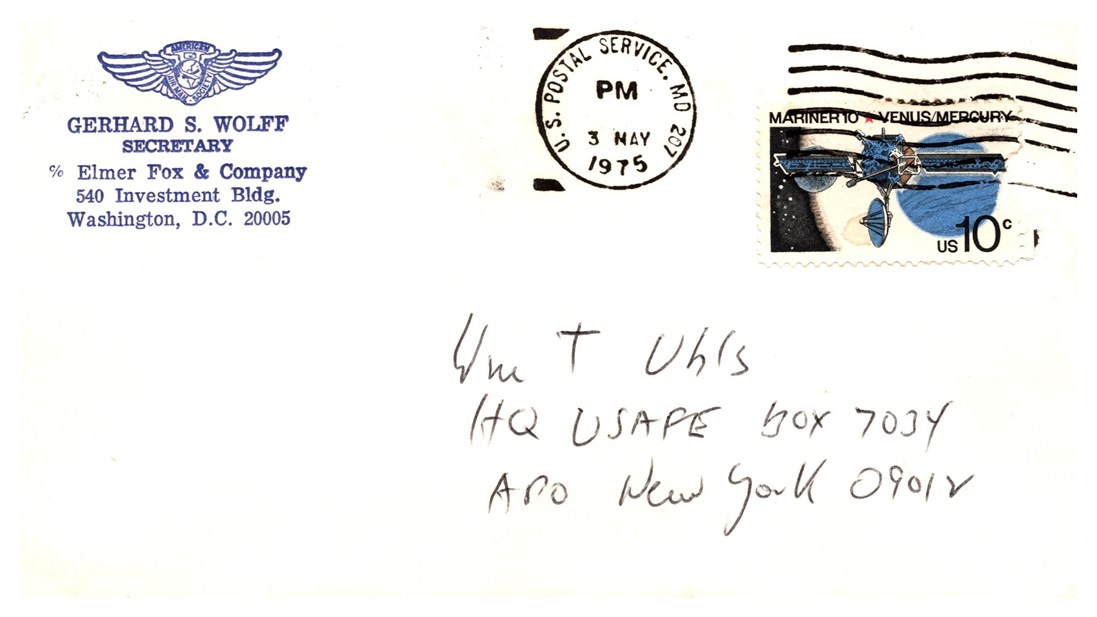 AMERICAN
AIR MAIL SOCIETY
GERHARD S. WOLFF
SECRETARY
℅ Elmer Fox & Company
540 Investment Bldg.
Washington, D.C. 20005
U.S. POSTAL SERVICE, MD 207
PM
3 MAY
1975
MARINER 10 ★ VENUS/MERCURY
US 10c
Wm T Uhls
HQ USAFE BOX 7034
APO New York 09012